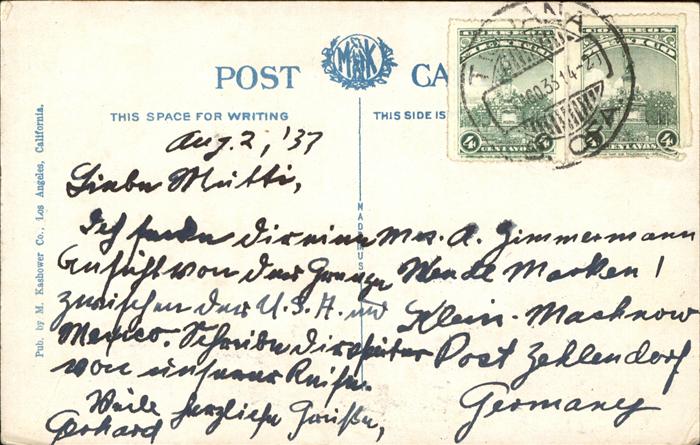 POST CA
MWK
THIS SPACE FOR WRITING
THIS SIDE IS
Pub. by M. Kashower Co., Los Angeles, California.
MADE US
CORREOS
MEXICO
4 CENTAVOS 4
CORREOS
MEXICO
CENTAVOS 4
TIJUANA
AGO 33 14-21
Aug. 2, '33
Liebe Mutti,
Ich sende dir eine
Ansicht von der Grenze
zwischen der U.S.A. und
Mexico. Schreibe dir später
von unserer Reise.
Viele herzliche Grüße,
Gerhard
Mrs. A. Zimmermann
Wende Marken!
Klein-Machnow
Post Zehlendorf
Germany